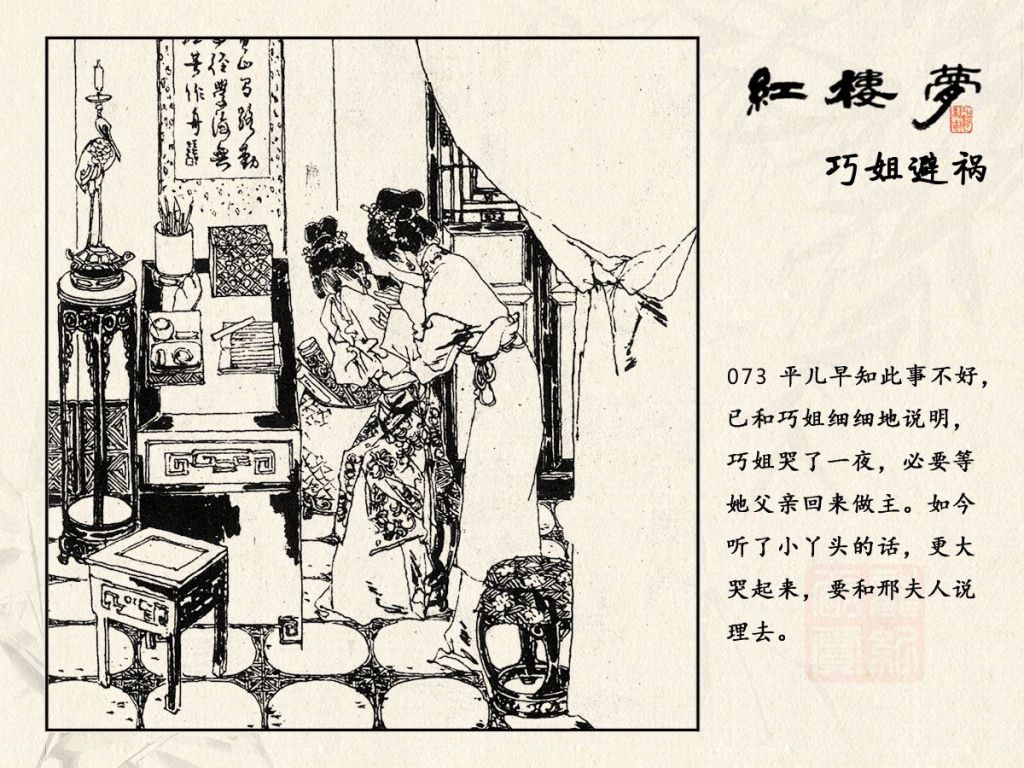 紅樓夢
巧姐避祸
073 平儿早知此事不好，
已和巧姐细细地说明，
巧姐哭了一夜，必要等
她父亲回来做主。如今
听了小丫头的话，更大
哭起来，要和邢夫人说
理去。
山有路勤
径學海無
苦作舟